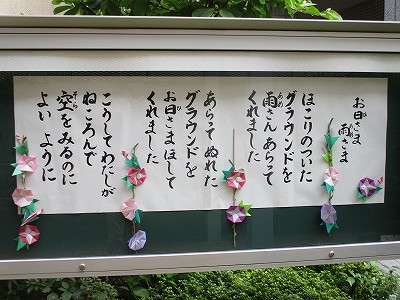 お日さま
雨さま
ほこりのついた
グラウンドを
雨さんあらって
くれました
あらって ぬれた
グラウンドを
お日さまほして
くれました
こうしてわたしが
ねころんで
空をみるのに
よい ように